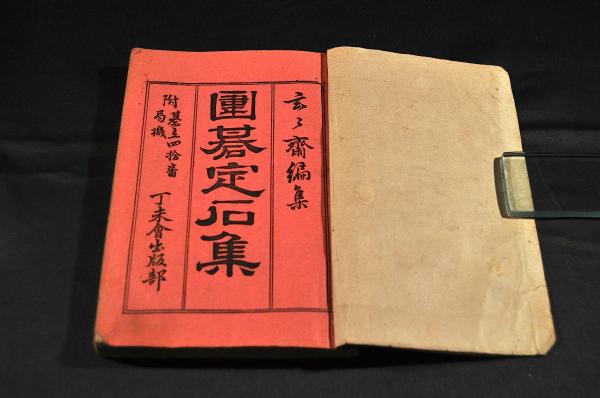 玄々齋編集
圍碁定石集
附 碁立四拾番
局機
丁未會出版部